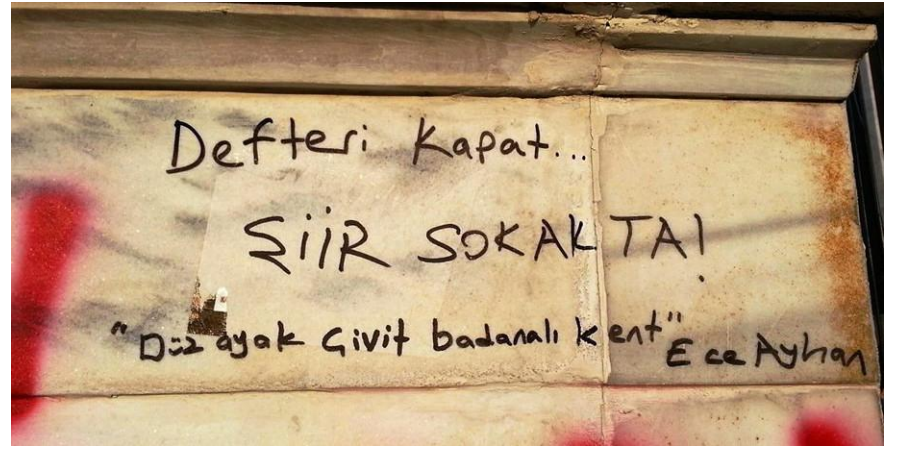 Defteri Kapat...
ŞİİR SOKAKTA!
"Düz ayak Çivit badanalı kent"
Ece Ayhan